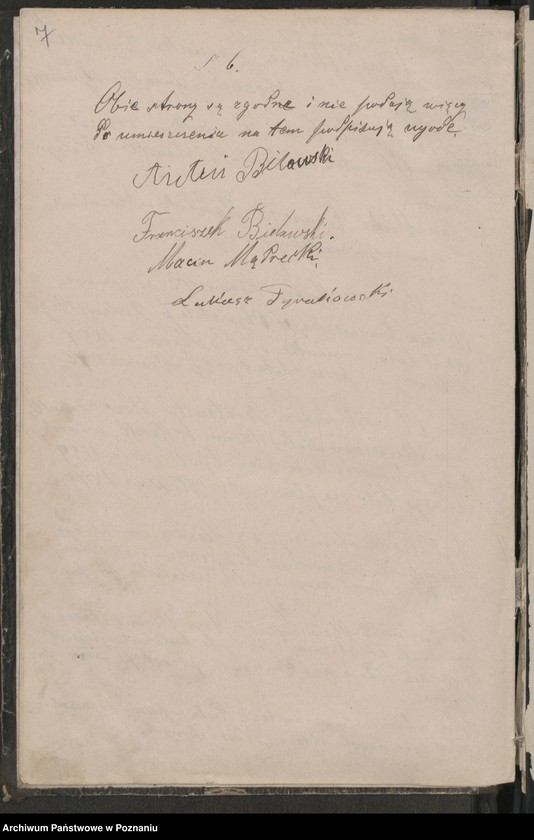 7
§ 6.
Obie strony są zgodne i nie podają więcy
do umieszczenia na tem podpisują ugodę.
Bilawski
Franciszek Bielawski.
Macin Mądrecki,
Łukasz
Archiwum Państwowe w Poznaniu